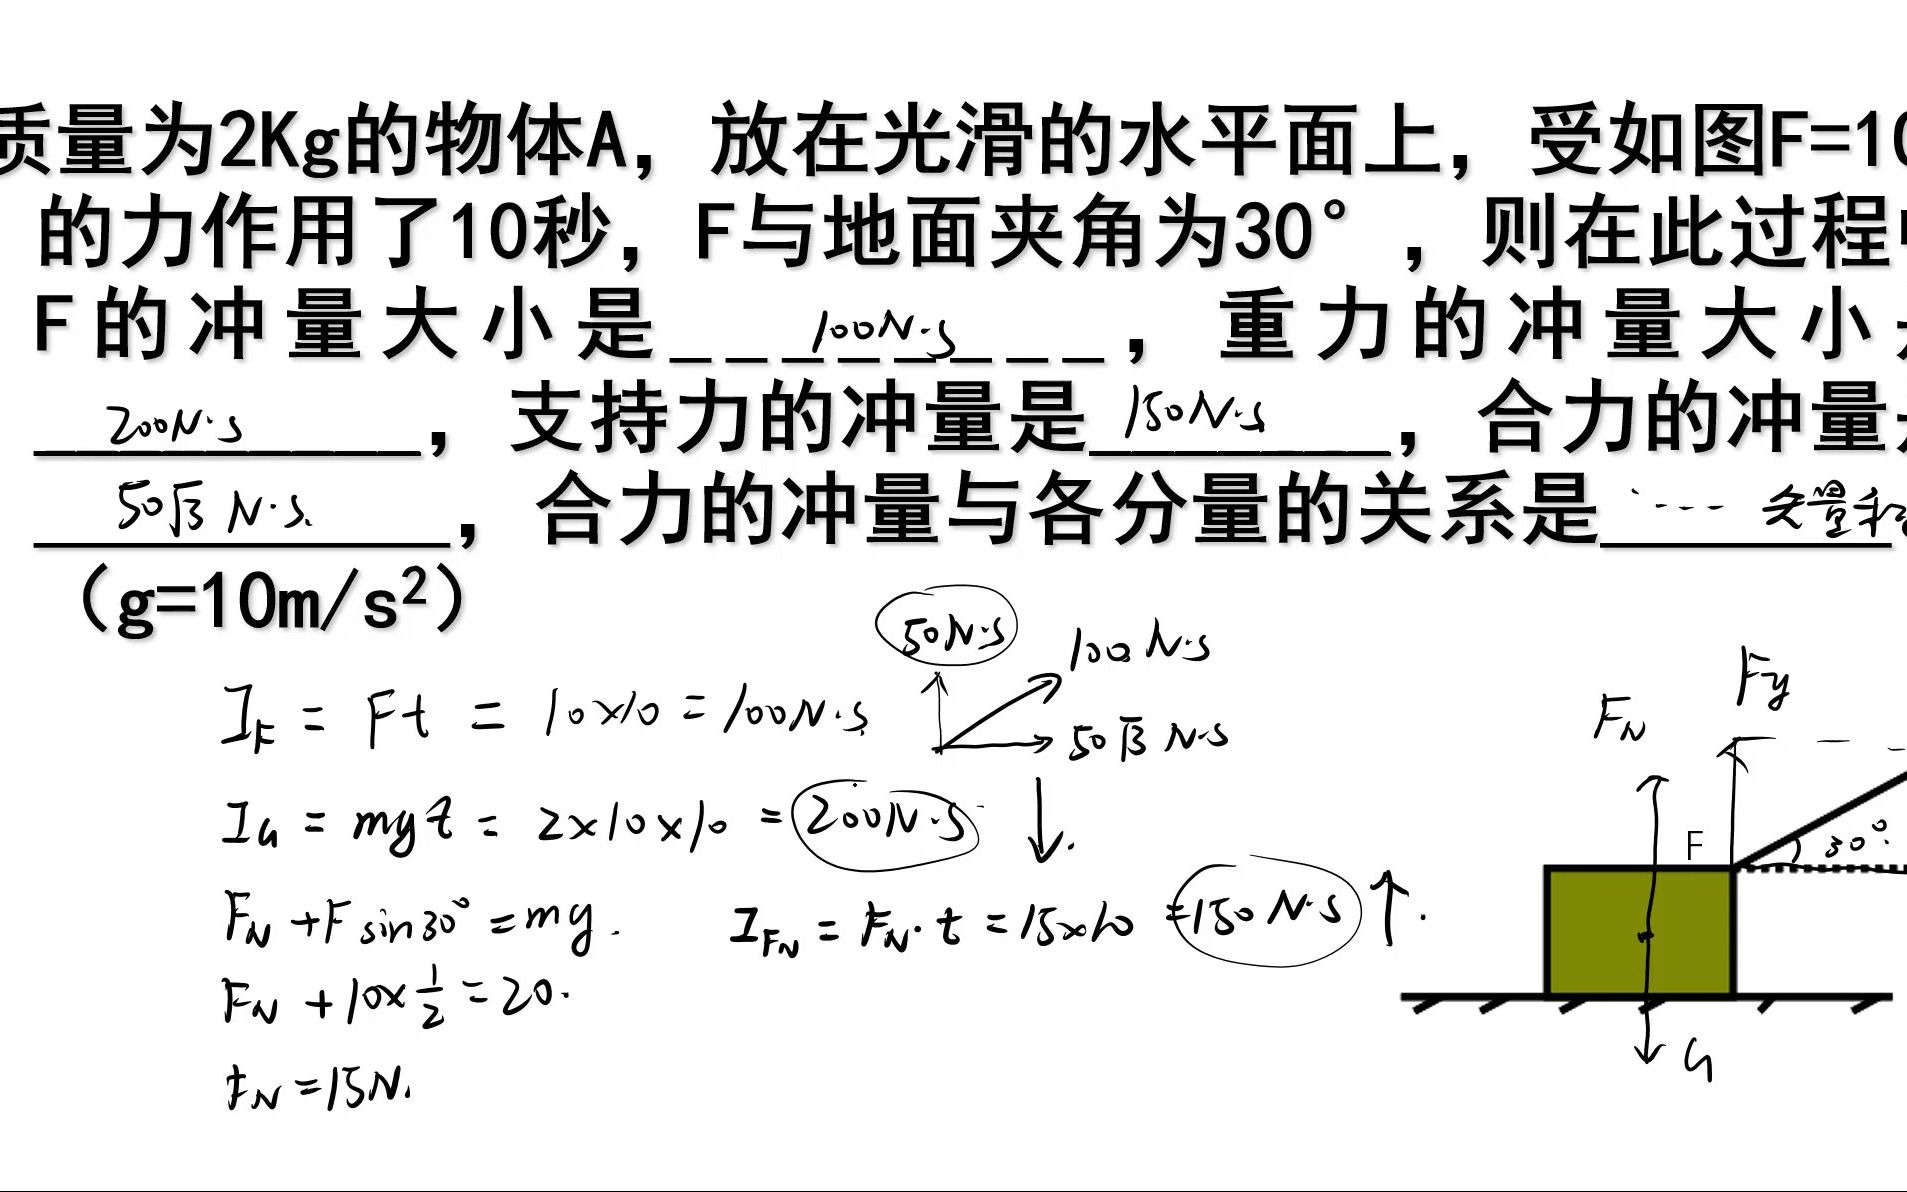 质量为2Kg的物体A，放在光滑的水平面上，受如图F=10
的力作用了10秒，F与地面夹角为30°，则在此过程中
F的冲量大小是 100N·S ，重力的冲量大小
200N·S ，支持力的冲量是 150N·S ，合力的冲量
50√3 N·S. ，合力的冲量与各分量的关系是 矢量和
（g=10m/s²）
50N·S
100 N·S
50√3 N·S
I_F = Ft = 10×10 = 100N·S
I_G = mgt = 2×10×10 = 200N·S ↓.
F_N + F sin30° = mg.
I_FN = F_N·t = 15×10 = 150N·S ↑.
F_N + 10×1/2 = 20.
F_N = 15N.
F_N
Fy
F
30°
G